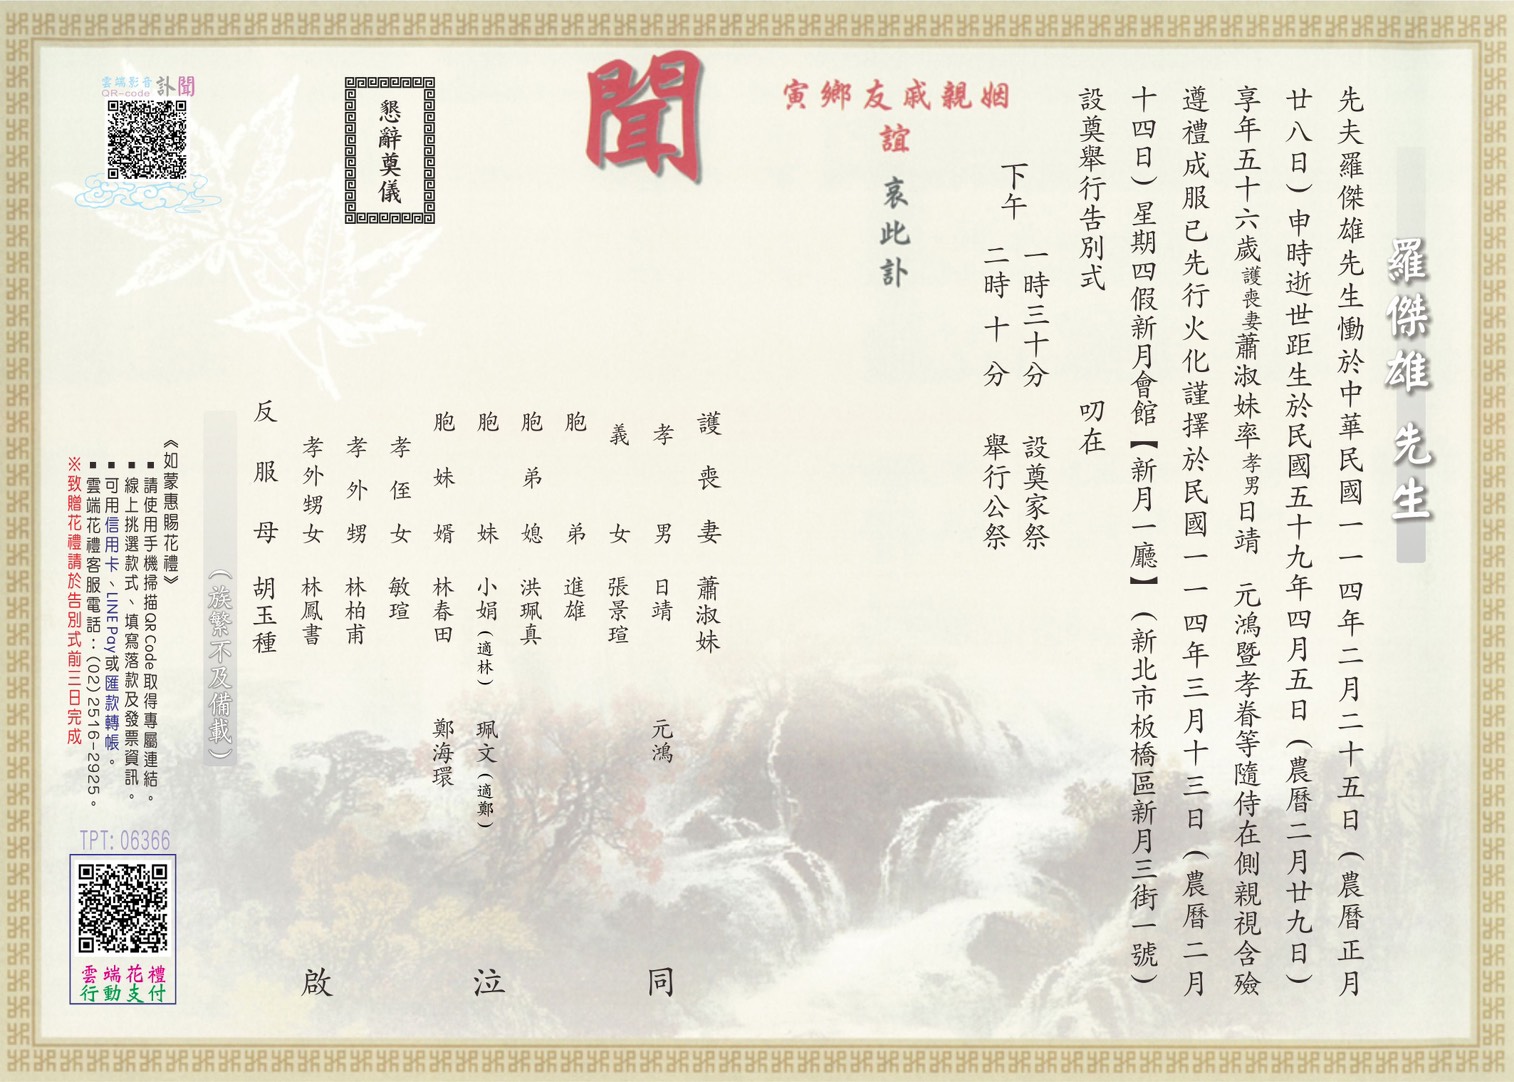 羅傑雄 先生
先夫羅傑雄先生慟於中華民國一一四年二月二十五日（農曆正月
廿八日）申時逝世距生於民國五十九年四月五日（農曆二月廿九日）
享年五十六歲護喪妻蕭淑妹率孝男日靖 元鴻暨孝眷等隨侍在側親視含殮
遵禮成服已先行火化謹擇於民國一一四年三月十三日（農曆二月
十四日）星期四假新月會館【新月一廳】（新北市板橋區新月三街一號）
設奠舉行告別式 叨在
下午
一時三十分 設奠家祭
二時十分 舉行公祭
寅鄉友戚親姻
誼
哀此訃
聞
護喪妻 蕭淑妹
孝男 日靖 元鴻
義女 張景瑄
胞弟 進雄
胞弟媳 洪珮真
胞妹 小娟（適林） 珮文（適鄭）
胞妹婿 林春田 鄭海環
孝侄女 敏瑄
孝外甥 林柏甫
孝外甥女 林鳳書
反服母 胡玉種
同
泣
啟
（族繁不及備載）
懇辭奠儀
雲端影音訃聞
QR-code
《如蒙惠賜花禮》
▪ 請使用手機掃描QR Code取得專屬連結。
▪ 線上挑選款式、填寫落款及發票資訊。
▪ 可用信用卡、LINE Pay或匯款轉帳。
▪ 雲端花禮客服電話：(02)2516-2925。
※致贈花禮請於告別式前三日完成
TPT: 06366
雲端花禮
行動支付